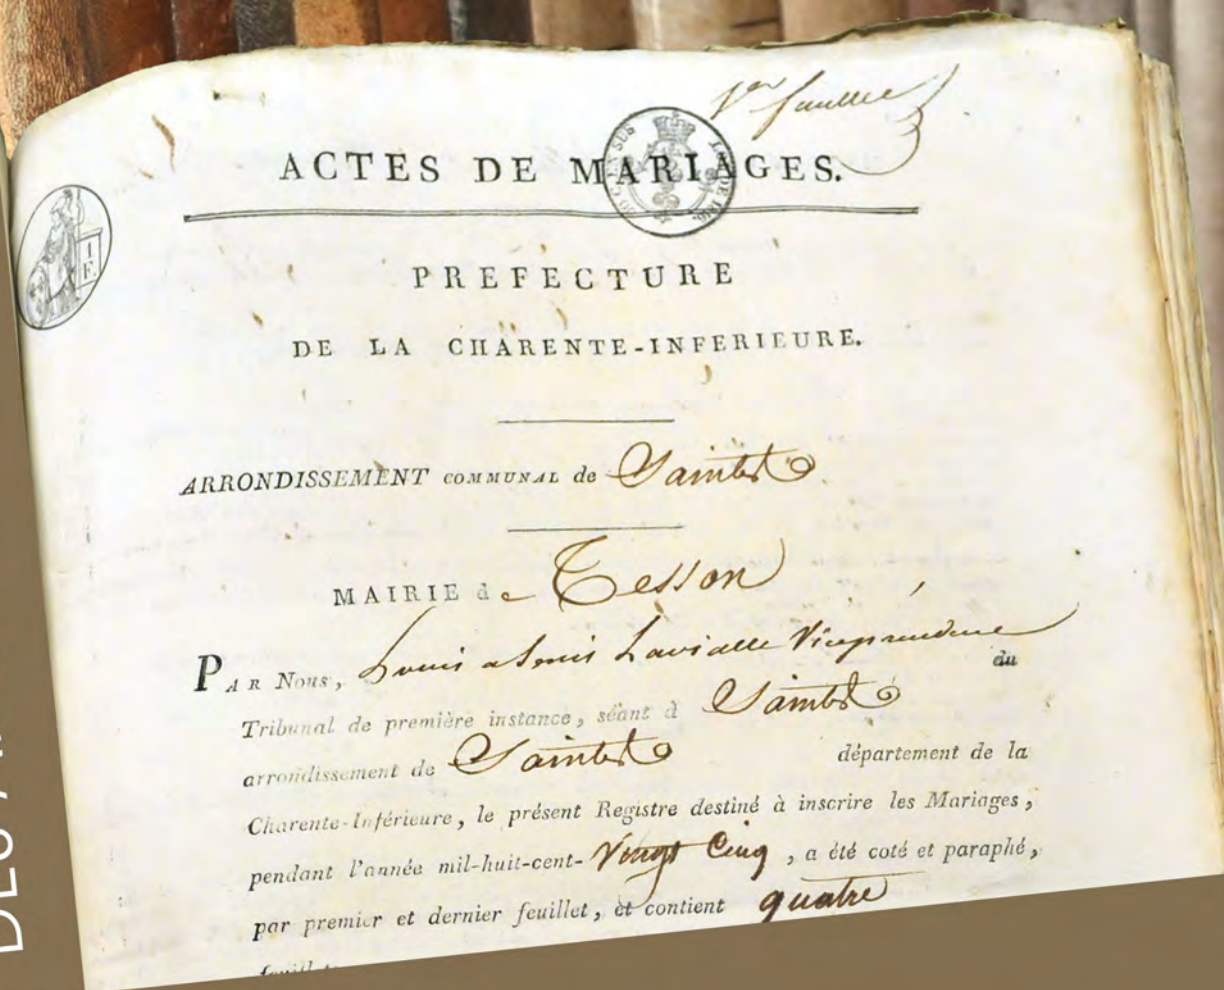 1er feuillet
ACTES DE MARIAGES.
PREFECTURE
DE LA CHARENTE-INFERIEURE.
ARRONDISSEMENT COMMUNAL de Saintes
MAIRIE de Tesson
PAR NOUS, Louis Lavialle Vice président du
Tribunal de première instance, séant à Saintes
arrondissement de Saintes département de la
Charente-Inférieure, le présent Registre destiné à inscrire les Mariages,
pendant l'année mil-huit-cent-Vingt Cinq, a été coté et paraphé,
par premier et dernier feuillet, et contient quatre